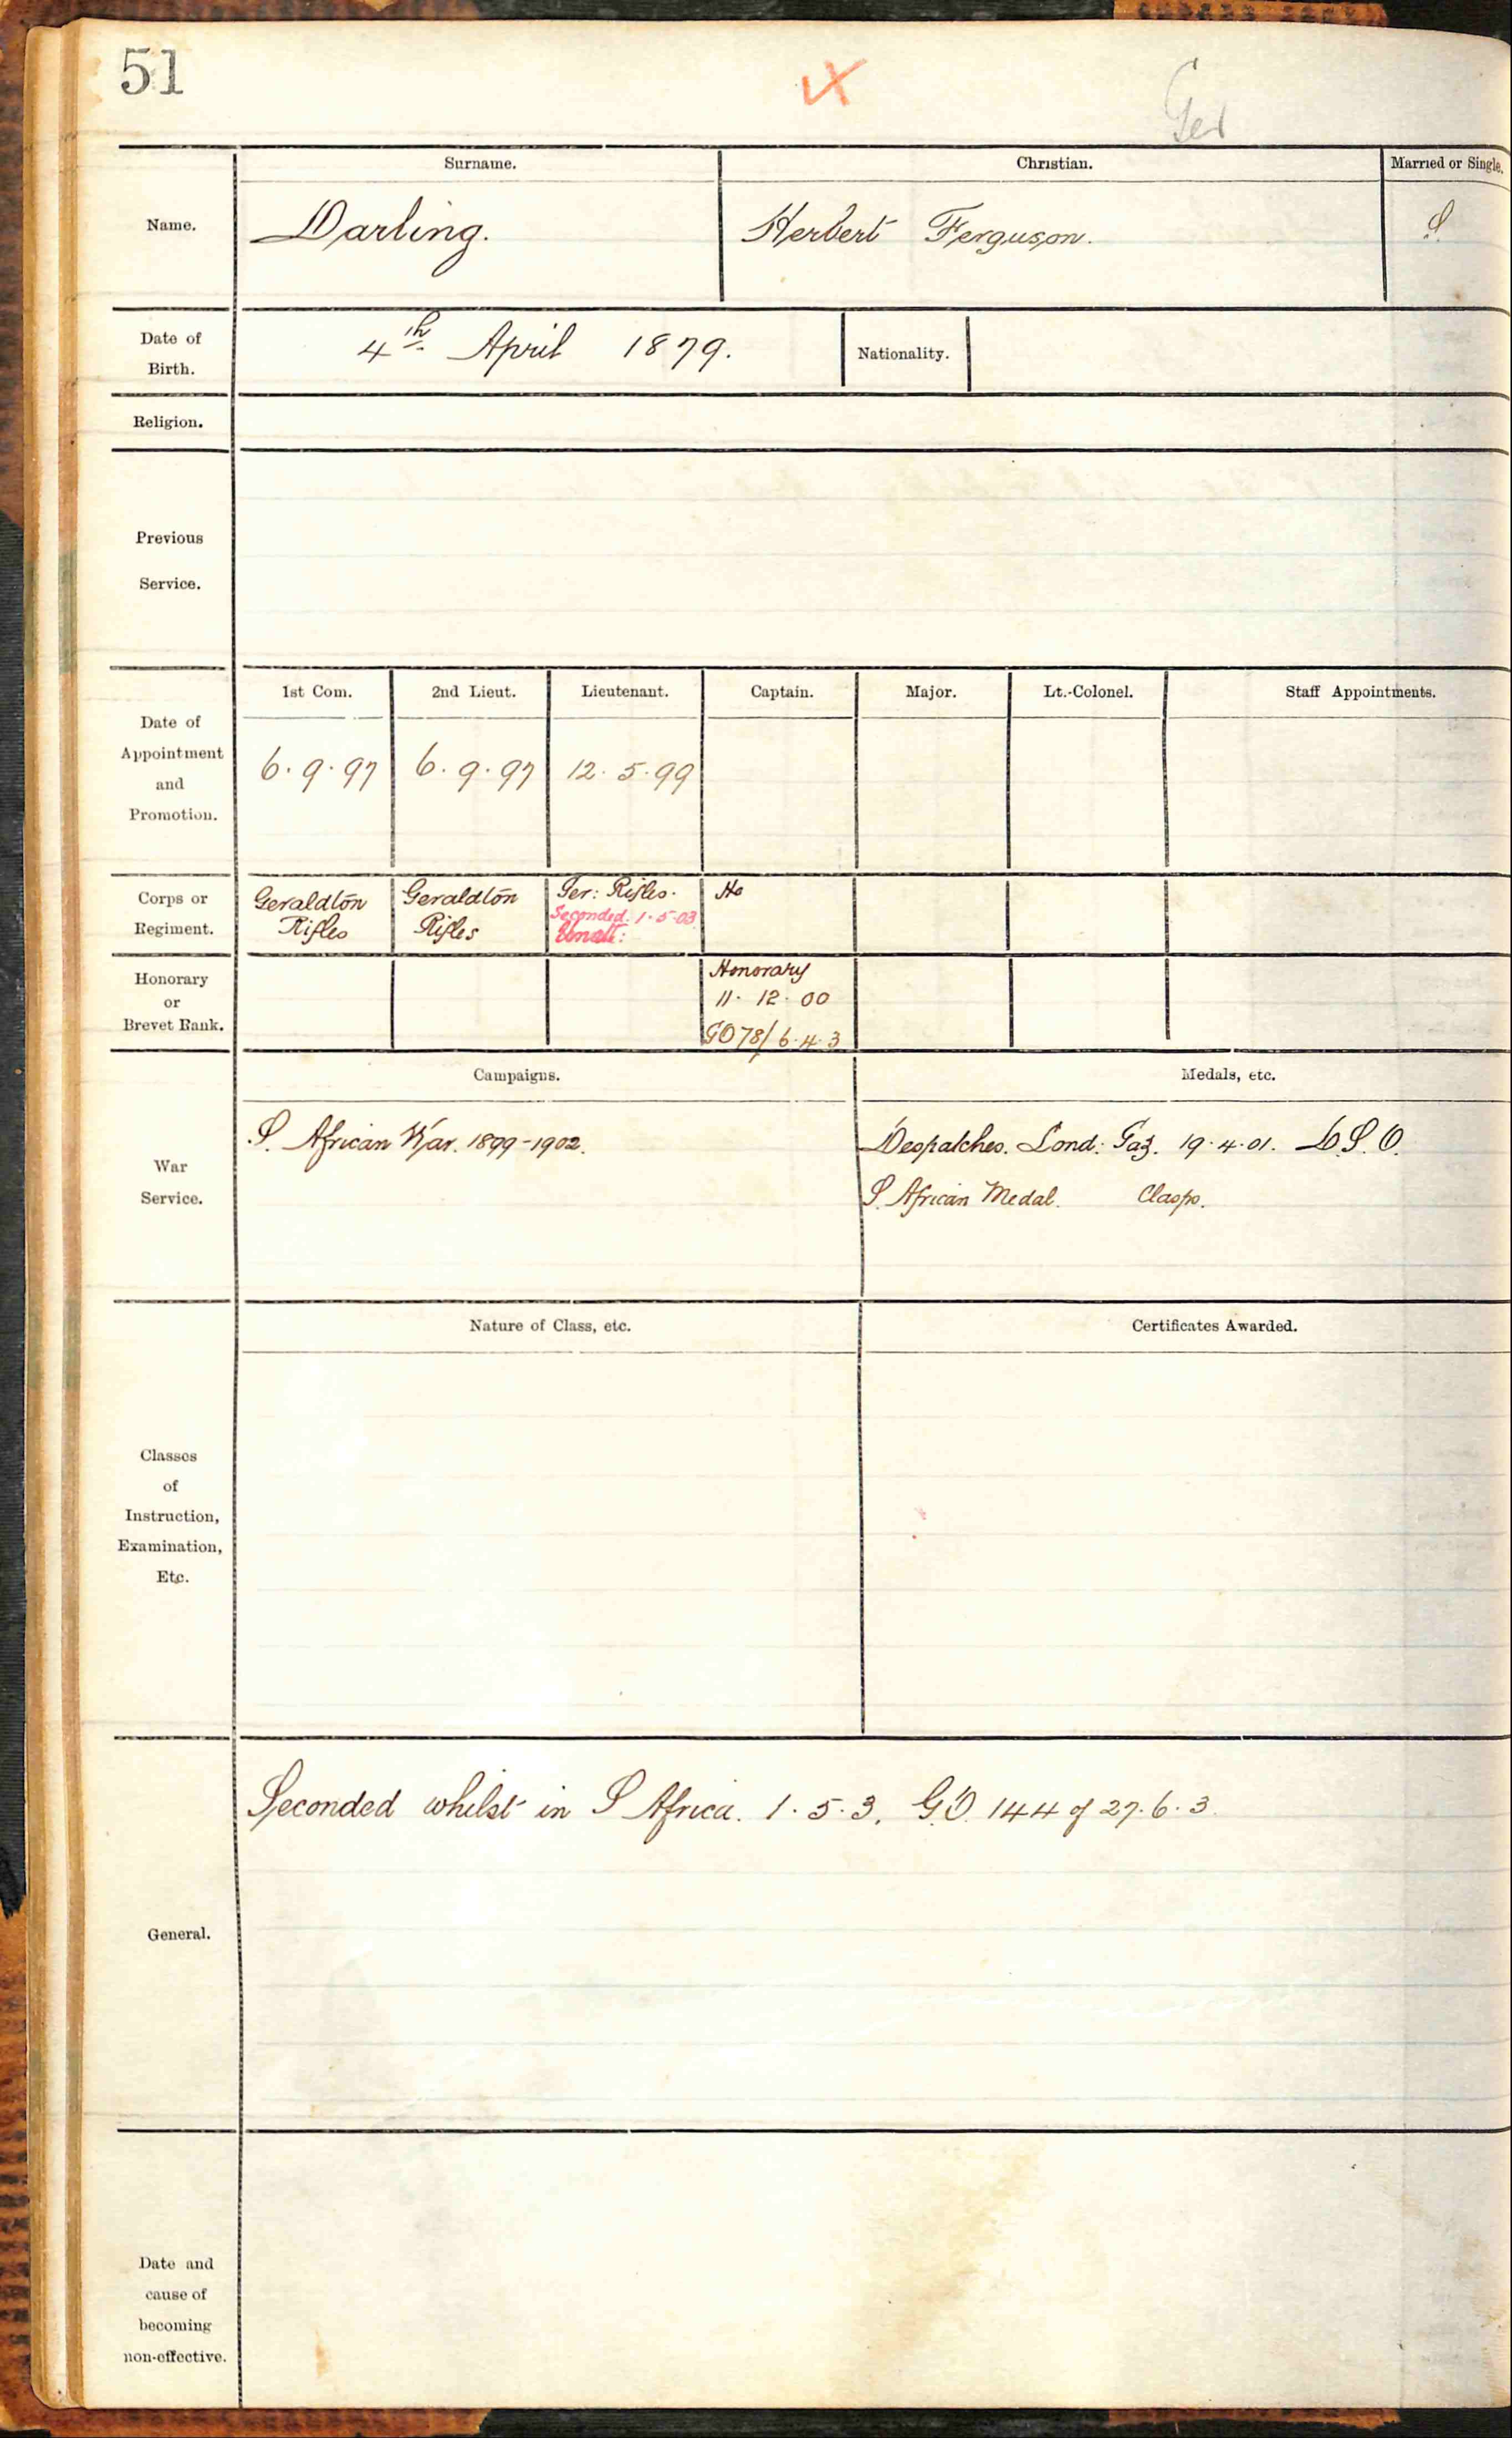 51
Ger
Surname.
Christian.
Married or Single.
Name.
Darling.
Herbert Ferguson.
S.
Date of
Birth.
4th April 1879.
Nationality.
Religion.
Previous
Service.
Date of
Appointment
and
Promotion.
1st Com.
2nd Lieut.
Lieutenant.
Captain.
Major.
Lt.-Colonel.
Staff Appointments.
6.9.97
6.9.97
12.5.99
Corps or
Regiment.
Geraldton
Rifles
Geraldton
Rifles
Ger: Rifles.
Seconded. 1.5.03
Ho
Honorary
or
Brevet Rank.
Honorary
11.12.00
GO 78/6.4.3
War
Service.
Campaigns.
Medals, etc.
S. African War. 1899-1902.
Despatches. Lond: Gaz. 19.4.01. D.S.O.
S. African Medal. Clasps.
Classes
of
Instruction,
Examination,
Etc.
Nature of Class, etc.
Certificates Awarded.
General.
Seconded whilst in S Africa. 1.5.3. G.O. 144 of 27.6.3.
Date and
cause of
becoming
non-effective.